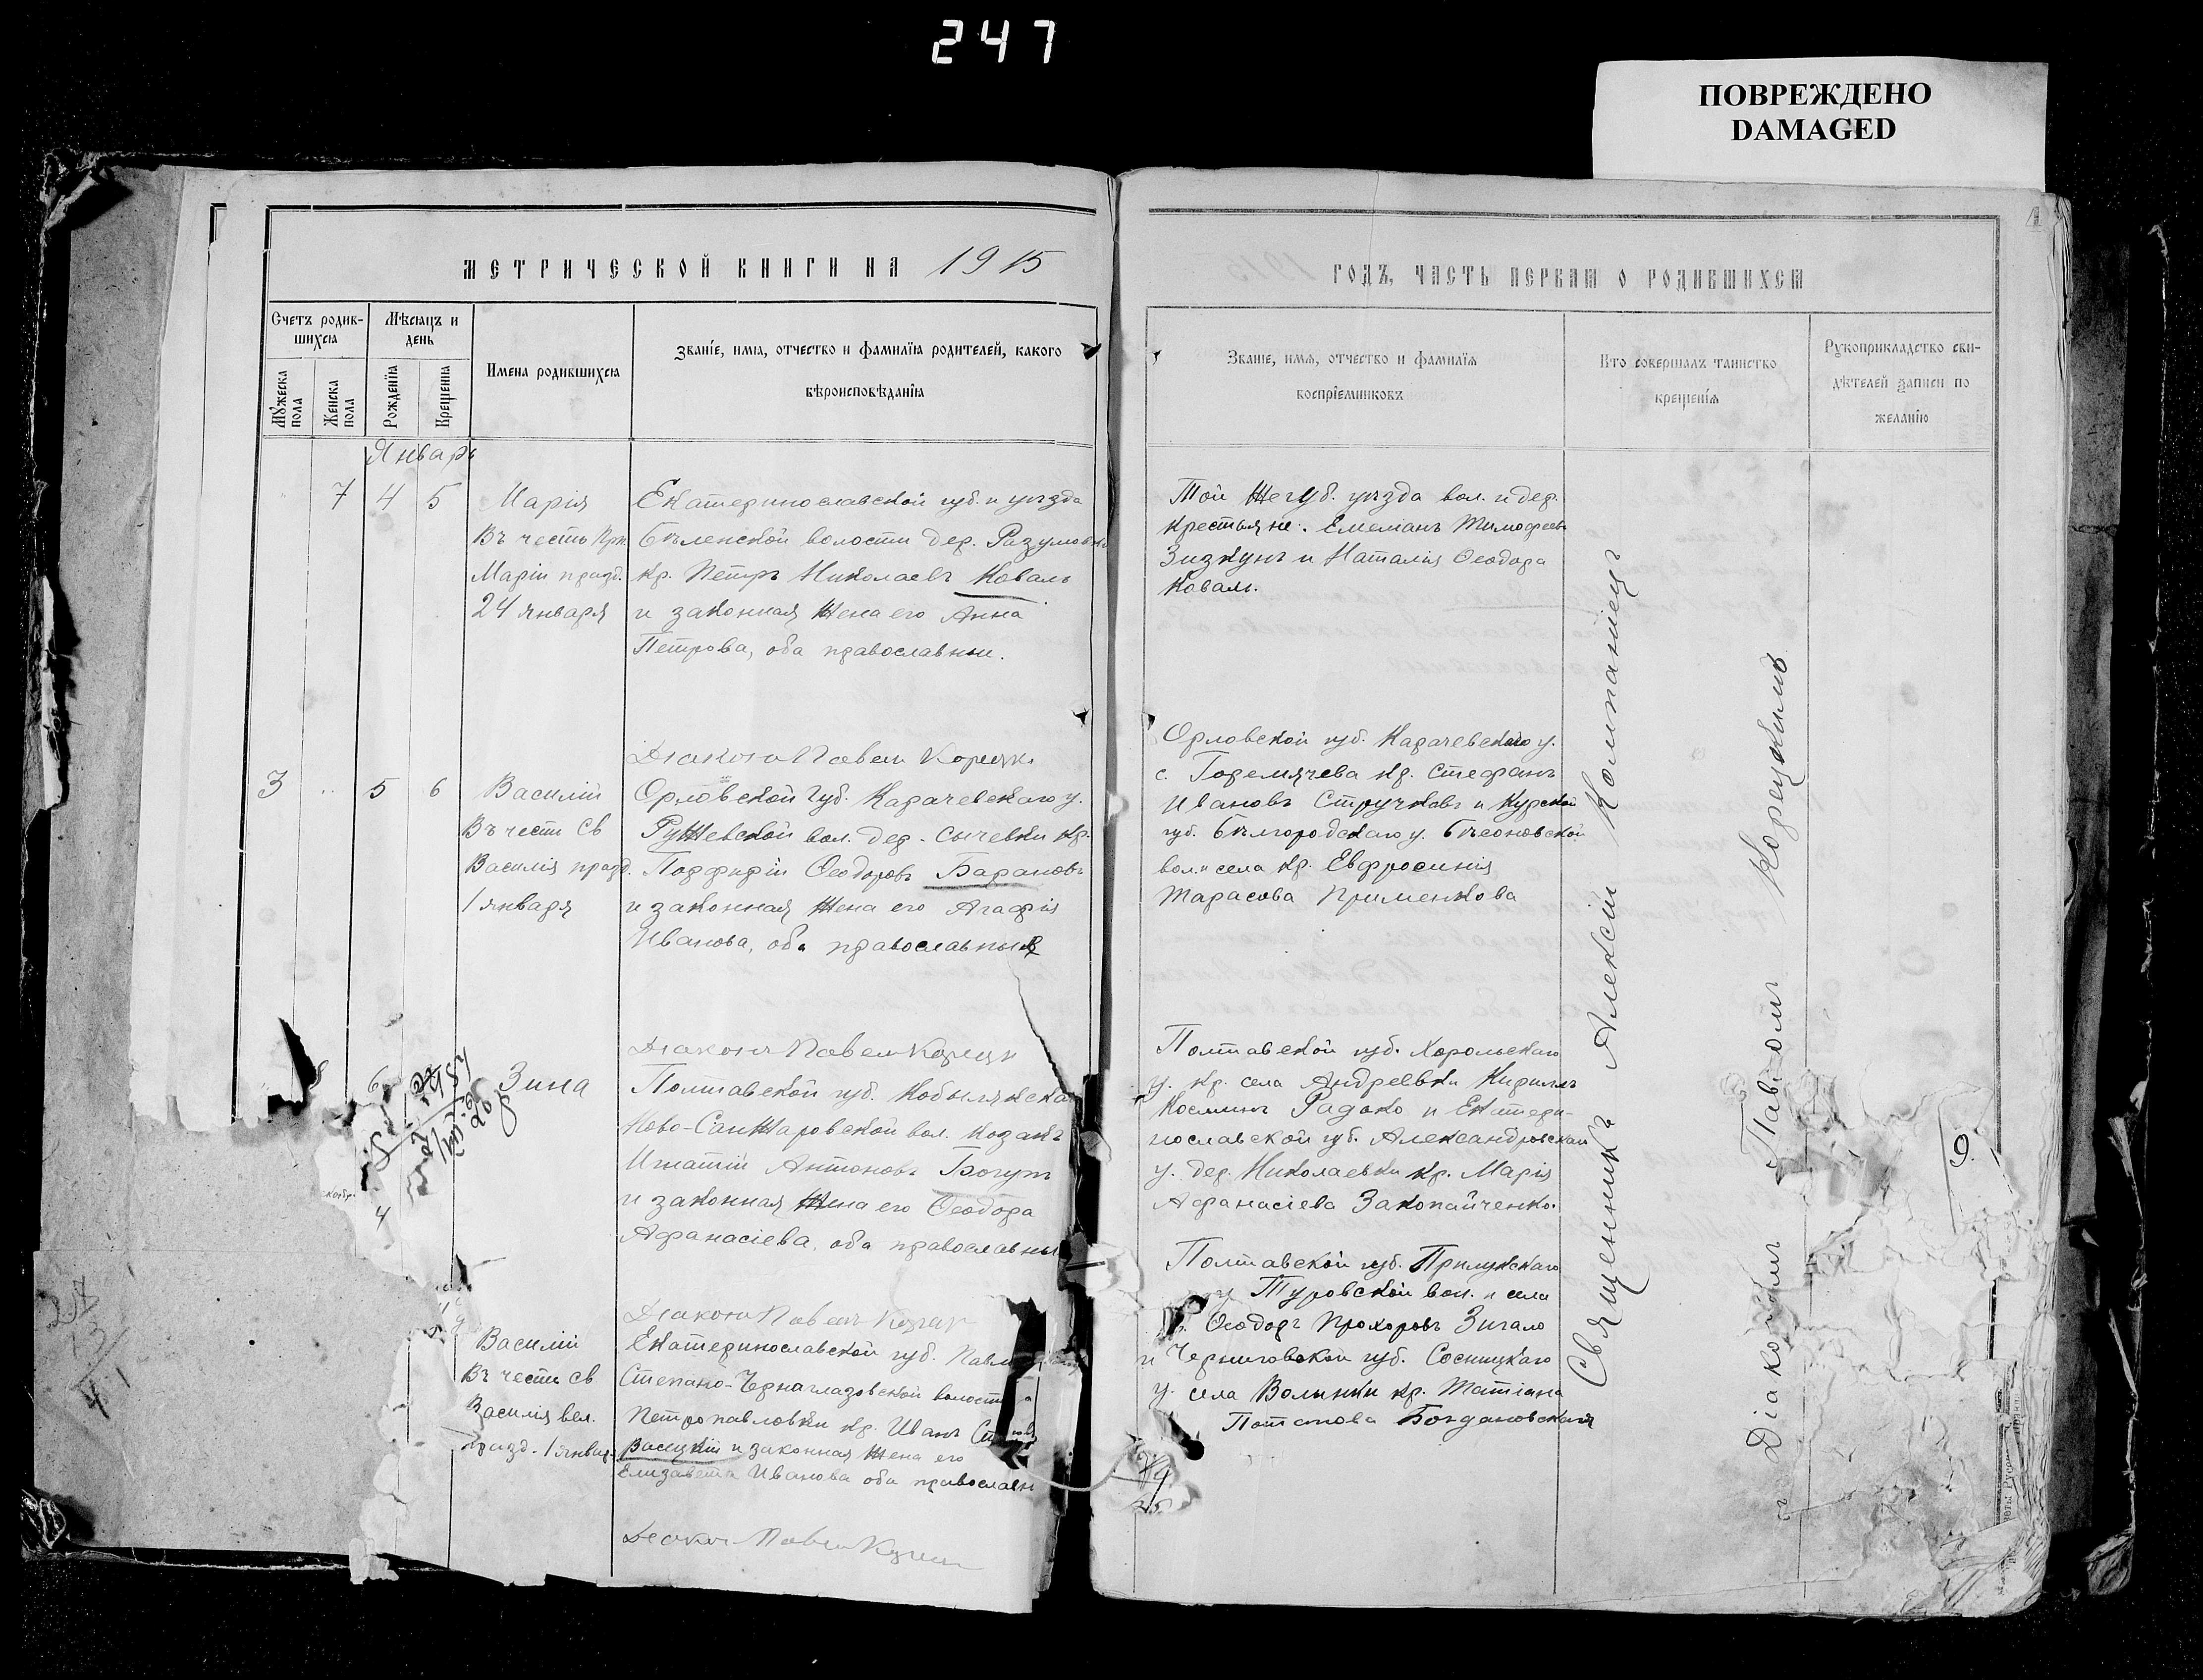 247
ПОВРЕЖДЕНО
DAMAGED
МЕТРИЧЕСКОЙ КНИГИ НА 1915
Счетъ родив-
шихся
Мѣсяцъ и
день
Имена родившихся
Званіе, имя, отчество и фамилія родителей, какого
вѣроисповѣданія
Мужеска
пола
Женска
пола
Рожденія
Крещенія
Январь
7 4 5
Марія
Въ честь Прп.
Маріи празд.
24 января
Екатеринославской губ. и уѣзда
Бѣленской волости дер. Разумовк
кр. Петръ Николаевъ Коваль
и законная жена его Анна
Петрова, оба православные.
Діаконъ Павелъ Корецк
3 " 5 6
Василій
Въ честь Св
Василія празд.
1 января
Орловской губ. Карачевскаго у.
Ружевской вол. дер. Сычевки кр.
Порфирій Ѳеодоровъ Барановъ
и законная жена его Агафія
Иванова, оба православные
Діаконъ Павелъ Корецк
6
Зина
Полтавской губ. Кобылякска
Ново-Санжаровской вол. козакъ
Игнатій Антоновъ Богунъ
и законная жена его Ѳеодора
Афанасіева, оба православны
Діаконъ Павелъ
Василій
Въ честь Св
Василія вел.
празд. 1 январ
Екатеринославской губ. Павл
Степано-Черноглазовской волост
Петропавловки кр. Иванъ
Васецкій и законная жена его
Елизавета Иванова оба православн
Діаконъ Павел
27
13
41
ГОДЪ, ЧАСТЬ ПЕРВАЯ О РОДИВШИХСЯ
Званіе, имя, отчество и фамилія
воспріемниковъ
Кто совершалъ таинство
крещенія
Рукоприкладство сви-
дѣтелей записи по
желанію
Той же губ. уѣзда вол. и дер.
крестьяне. Емеліанъ Тимофеевъ
Зизкунъ и Наталія Ѳеодора
Коваль.
Орловской губ. Карачевскаго у.
с. Горемячева кр. Стефанъ
Ивановъ Стручковъ и Курской
губ. Бѣлгородскаго у. Бѣсоновской
вол. и села кр. Евфросинія
Тарасова Применкова
Полтавской губ. Хорольскаго
у. кр. села Андреевки Кириллъ
Косминъ Радоко и Екатери-
нославской губ. Александровскаго
у. дер. Николаевки кр. Марія
Афанасіева Закопайченко.
Полтавской губ. Прилукскаго
у. Туровской вол. и села
Ѳеодоръ Прохоровъ Зигало
и Черниговской губ. Сосницкаго
у. села Волынки кр. Татіана
Потапова Богдановская
Священникъ Алексій Компаніецъ
съ Діакономъ Павломъ Корецкимъ
9.